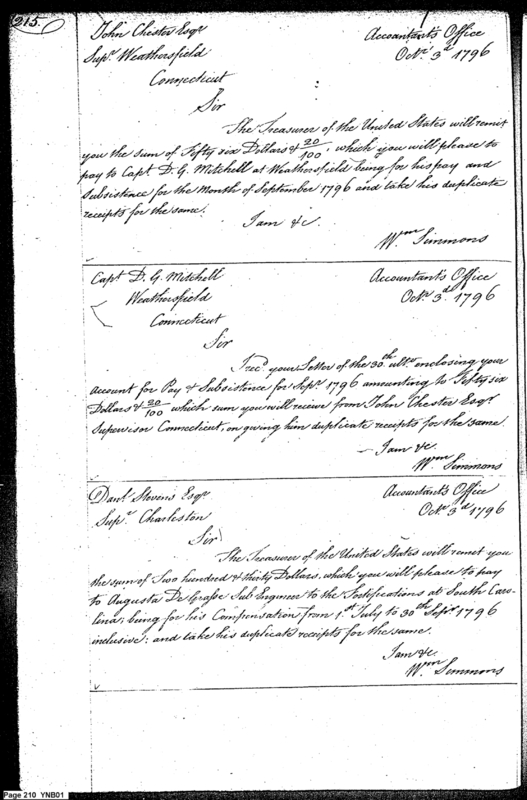 215.
John Chester Esqr Accountant's Office
Supr. Weathersfield Octr. 3d 1796
Connecticut
Sir
The Treasurer of the United States will remit
you the sum of Fifty six Dollars & 20/100, which you will please to
pay to Capt D. G. Mitchell at Weathersfield being for his pay and
Subsistence for the Month of September 1796 and take his duplicate
receipts for the same.
I am &c.
Wm Simmons
Capt D. G. Mitchell Accountant's Office
Weathersfield Octr 3d. 1796
Connecticut
Sir
I recd. your Letter of the 30th ulto. enclosing your
account for Pay & Subsistence for Sepr. 1796 amounting to Fifty six
Dollars & 20/100 which sum you will receive from John Chester Esqr
Supervisor Connecticut, on giving him duplicate receipts for the same.
I am &c.
Wm Simmons
Danl. Stevens Esqr Accountant's Office
Supr. Charleston Octr 3d 1796
Sir
The Treasurer of the United States will remet you
the sum of Two hundred & thirty Dollars, which you will please to pay
to Augusta De Grasse Sub Enginer to the Fortifications at South Caro-
lina; being for his Compensation from 1st July to 30th Sepr. 1796
inclusive: and take his duplicate receipts for the same.
I am &c.
Wm Simmons
Page 210 YNB01